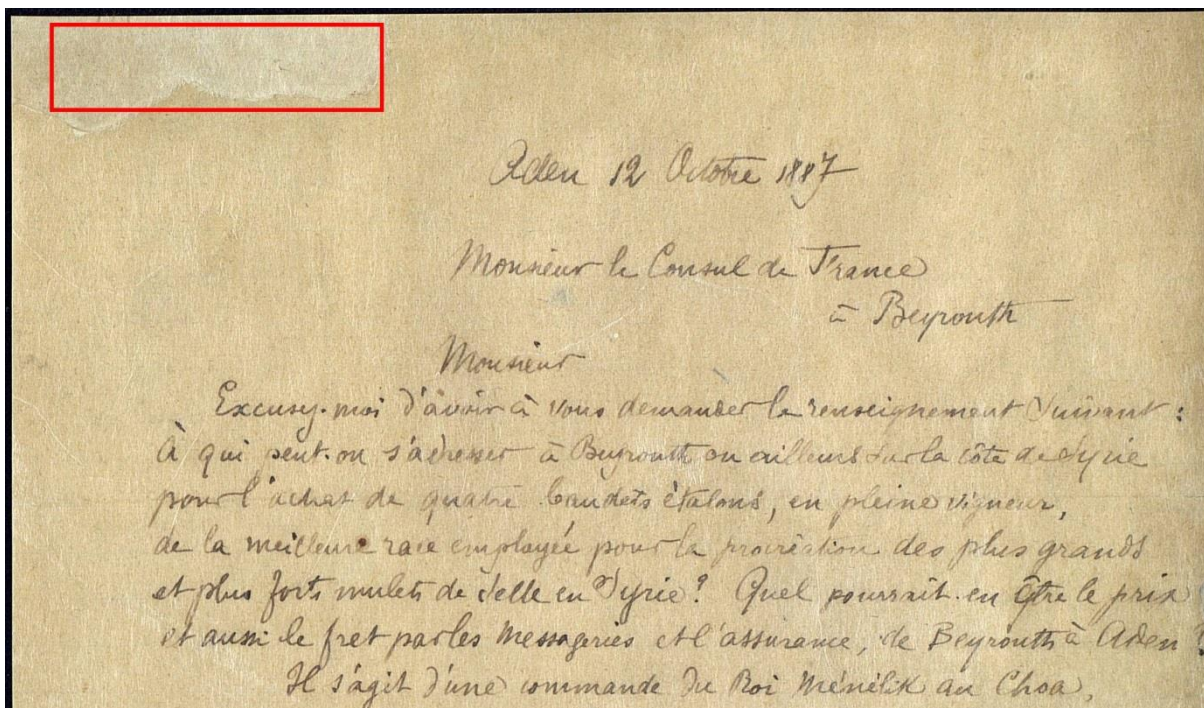 Aden 12 Octobre 1887
Monsieur le Consul de France
à Beyrouth
Monsieur
Excusez-moi d'avoir à vous demander le renseignement suivant :
À qui peut-on s'adresser à Beyrouth ou ailleurs sur la côte de Syrie
pour l'achat de quatre baudets étalons, en pleine vigueur,
de la meilleure race employée pour la procréation des plus grands
et plus forts mulets de selle en Syrie? Quel pourrait en être le prix
et aussi le fret par les Messageries et l'assurance, de Beyrouth à Aden?
Il s'agit d'une commande du Roi Ménélik au Choa,